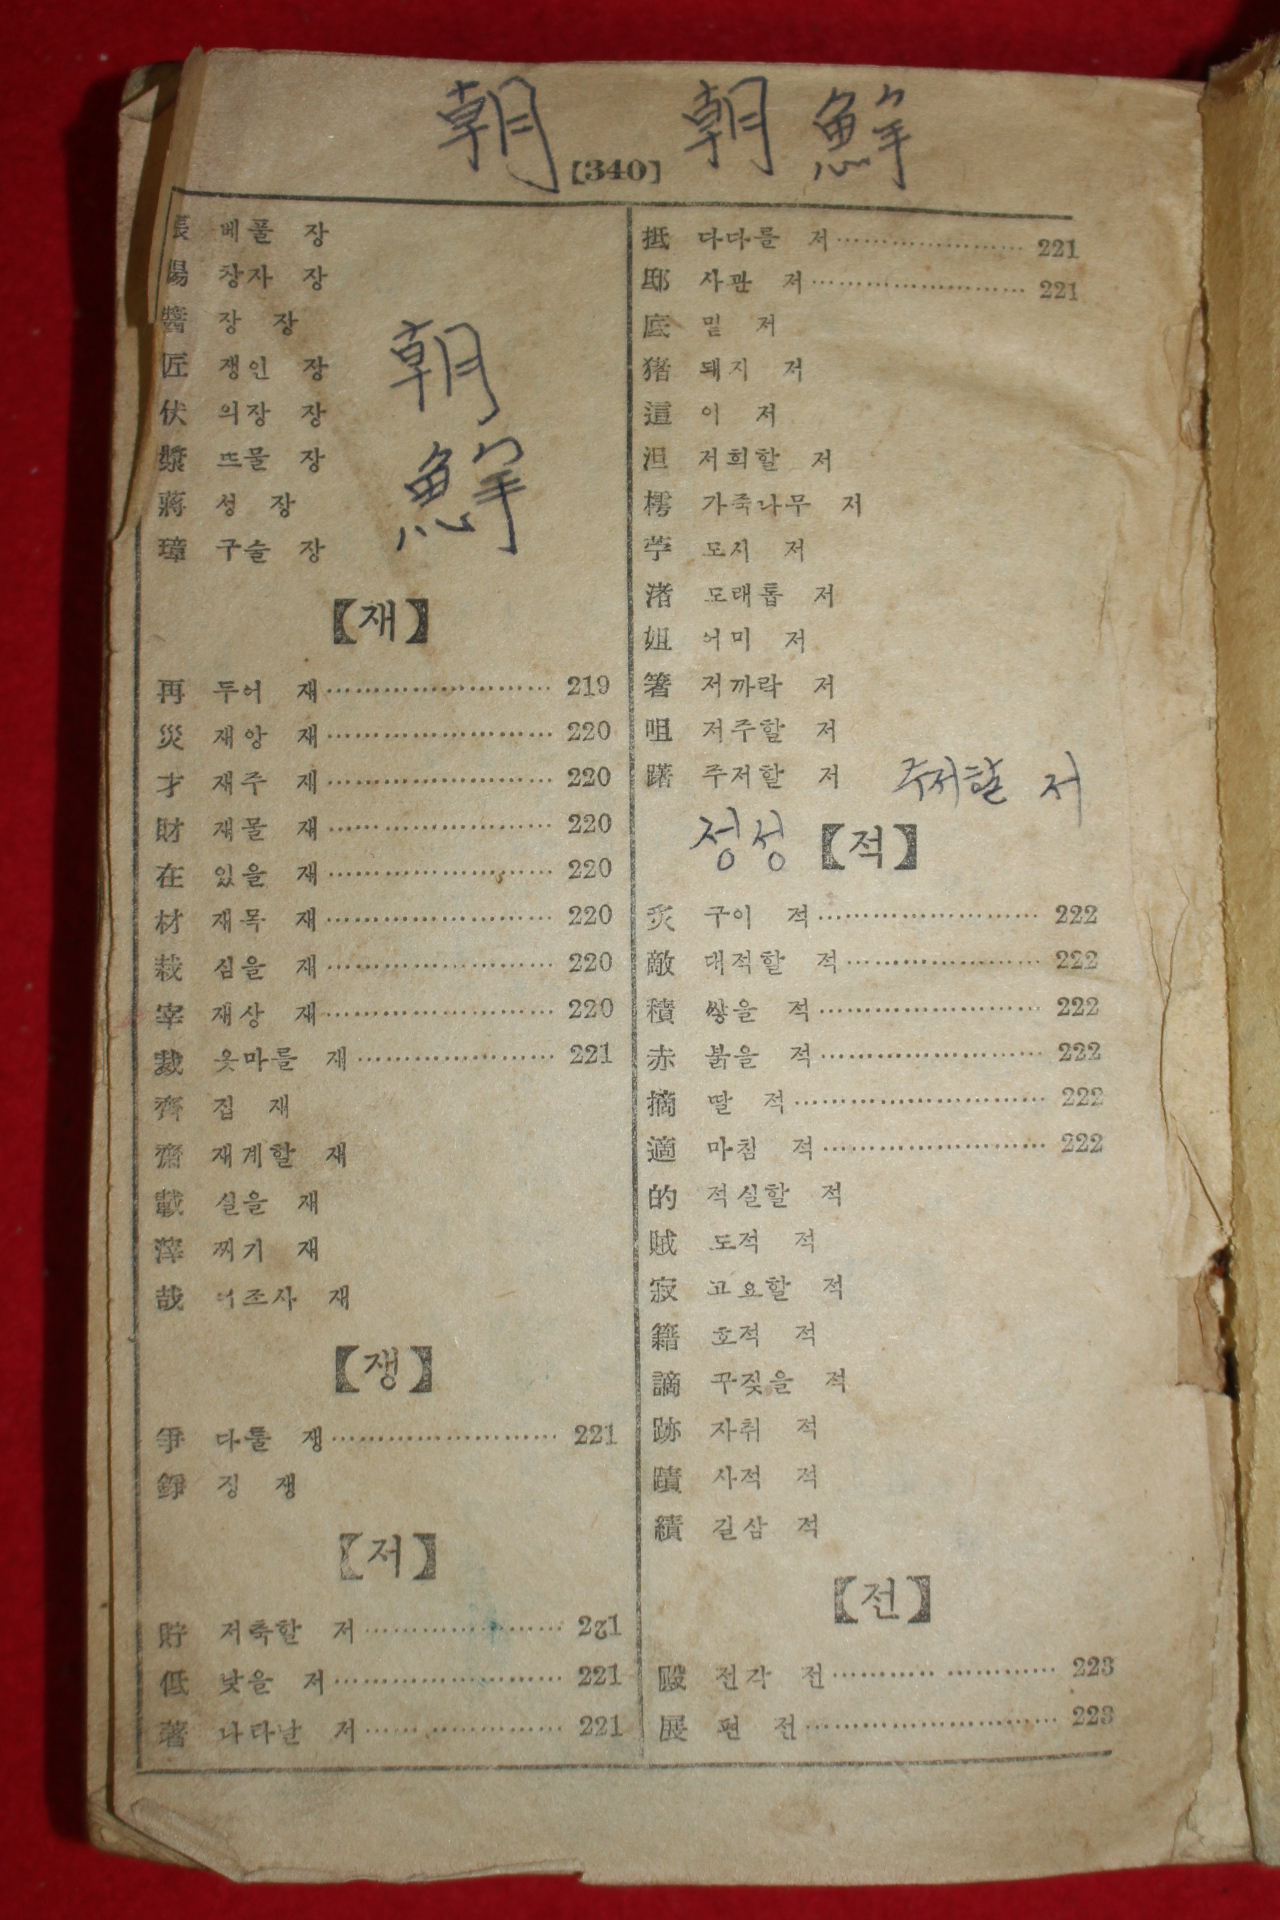 朝 朝鮮
[340]
張 베풀 장
腸 창자 장
醬 장 장
匠 쟁인 장
仗 의장 장
漿 뜨물 장
蔣 성 장
璋 구슬 장
朝
鮮
【재】
再 두어 재 219
災 재앙 재 220
才 재주 재 220
財 재물 재 220
在 있을 재 220
材 재목 재 220
栽 심을 재 220
宰 재상 재 220
裁 옷마를 재 221
齊 집 재
齋 재계할 재
載 실을 재
滓 찌기 재
哉 어조사 재
【쟁】
爭 다툴 쟁 221
錚 징 쟁
【저】
貯 저축할 저 221
低 낮을 저 221
著 나타날 저 221
抵 다다를 저 221
邸 사관 저 221
底 밑 저
猪 돼지 저
這 이 저
沮 저희할 저
樗 가죽나무 저
苧 모시 저
渚 모래톱 저
姐 어미 저
箸 저까락 저
咀 저주할 저
躇 주저할 저 주저할 저
정성 【적】
炙 구이 적 222
敵 대적할 적 222
積 쌓을 적 222
赤 붉을 적 222
摘 딸 적 222
適 마침 적 222
的 적실할 적
賊 도적 적
寂 고요할 적
籍 호적 적
謫 꾸짖을 적
跡 자취 적
蹟 사적 적
績 길삼 적
【전】
殿 전각 전 223
展 편 전 223